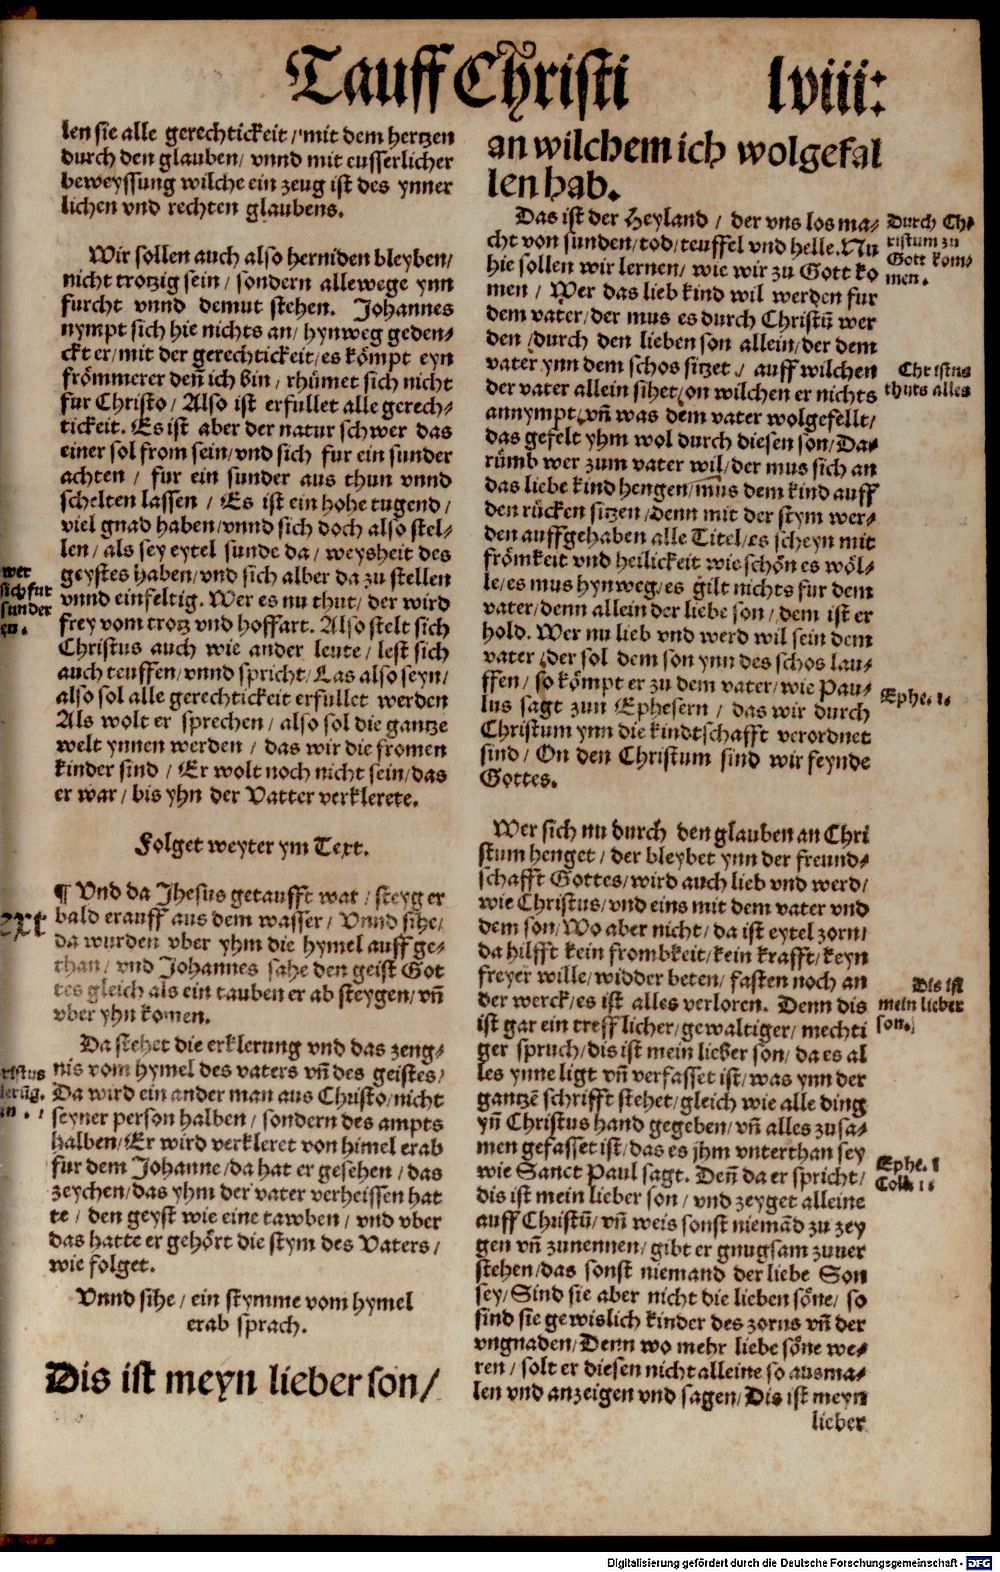 Tauff Christi lviii:
len sie alle gerechtickeit / mit dem hertzen
durch den glauben / vnnd mit eusserlicher
beweyssung wilche ein zeug ist des ynner
lichen vnd rechten glaubens.
Wir sollen auch also herniden bleyben /
nicht trotzig sein / sondern allewege ynn
furcht vnnd demut stehen. Johannes
nympt sich hie nichts an / hynweg geden⸗
ckt er / mit der gerechtickeit / es kömpt eyn
frömmerer deñ ich bin / rhümet sich nicht
fur Christo / Also ist erfullet alle gerech⸗
tickeit. Es ist aber der natur schwer das
einer sol from sein / vnd sich fur ein sunder
achten / fur ein sunder aus thun vnnd
schelten lassen / Es ist ein hohe tugend /
viel gnad haben / vnnd sich doch also stel⸗
len / als sey eytel sunde da / weysheit des
geystes haben / vnd sich alber da zu stellen
vnnd einfeltig. Wer es nu thut / der wird
frey vom trotz vnd hoffart. Also stelt sich
Christus auch wie ander leute / lest sich
auch teuffen / vnnd spricht / Las also seyn /
also sol alle gerechtickeit erfullet werden
Als wolt er sprechen / also sol die gantze
welt ynnen werden / das wir die fromen
kinder sind / Er wolt noch nicht sein / das
er war / bis yhn der Vatter verklerete.
wer
sich fur
sunder
en.
Folget weyter ym Text.
¶ Vnd da Jhesus getaufft wat / steyg er
bald erauff aus dem wasser / Vnnd sihe /
da wurden vber yhm die hymel auff ge⸗
than / vnd Johannes sahe den geist Got
tes gleich als ein tauben er ab steygen / vñ
vber yhn komen.
ext
Da stehet die erklerung vnd das zeng⸗
nis vom hymel des vaters vñ des geistes /
Da wird ein ander man aus Christo / nicht
seyner person halben / sondern des ampts
halben / Er wird verkleret von himel erab
fur dem Johanne / da hat er gesehen / das
zeychen / das yhm der vater verheissen hat
te / den geyst wie eine tawben / vnd vber
das hatte er gehört die stym des Vaters /
wie folget.
ristus
lerũg.
in.
Vnnd sihe / ein stymme vom hymel
erab sprach.
Dis ist meyn lieber son /
an wilchem ich wolgefal
len hab.
Das ist der Heyland / der vns los ma⸗
cht von sunden / tod / teuffel vnd helle. Nu
hie sollen wir lernen / wie wir zu Gott ko
men / Wer das lieb kind wil werden fur
dem vater / der mus es durch Christũ wer
den / durch den lieben son allein / der dem
vater ynn dem schos sitzet / auff wilchen
der vater allein sihet / on wilchen er nichts
annympt / vñ was dem vater wolgefellt /
das gefelt yhm wol durch diesen son / Da⸗
rümb wer zum vater wil / der mus sich an
das liebe kind hengen / mus dem kind auff
den rücken sitzen / denn mit der stym wer⸗
den auffgehaben alle Titel / es scheyn mit
frömkeit vnd heilickeit wie schön es wöl⸗
le / es mus hynweg / es gilt nichts fur dem
vater / denn allein der liebe son / dem ist er
hold. Wer nu lieb vnd werd wil sein dem
vater / der sol dem son ynn des schos lau⸗
ffen / so kömpt er zu dem vater / wie Pau⸗
lus sagt zun Ephesern / das wir durch
Christum ynn die kindtschafft verordnet
sind / On den Christum sind wir feynde
Gottes.
Durch Ch⸗
ristum zu
Gott kom⸗
men.
Christus
thuts alles
Ephe. 1.
Wer sich nu durch den glauben an Chri
stum henget / der bleybet ynn der freund⸗
schafft Gottes / wird auch lieb vnd werd /
wie Christus / vnd eins mit dem vater vnd
dem son / Wo aber nicht / da ist eytel zorn /
da hilfft kein frombkeit / kein krafft / keyn
freyer wille / widder beten / fasten noch an
der werck / es ist alles verloren. Denn dis
ist gar ein treff licher / gewaltiger / mechti
ger spruch / dis ist mein lieber son / da es al
les ynne ligt vñ verfasset ist / was ynn der
gantzẽ schrifft stehet / gleich wie alle ding
yñ Christus hand gegeben / vñ alles zusa⸗
men gefasset ist / das es jhm vnterthan sey
wie Sanct Paul sagt. Deñ da er spricht /
dis ist mein lieber son / vnd zeyget alleine
auff Christũ / vñ weis sonst niemãd zu zey
gen vñ zunennen / gibt er gnugsam zuuer
stehen / das sonst niemand der liebe Son
sey / Sind sie aber nicht die lieben söne / so
sind sie gewislich kinder des zorns vñ der
vngnaden / Denn wo mehr liebe söne we⸗
ren / solt er diesen nicht alleine so ausma⸗
len vnd anzeigen vnd sagen / Dis ist meyn
lieber
Dis ist
mein lieber
son.
Ephe. 1
Coll. 1.
Digitalisierung gefördert durch die Deutsche Forschungsgemeinschaft - DFG